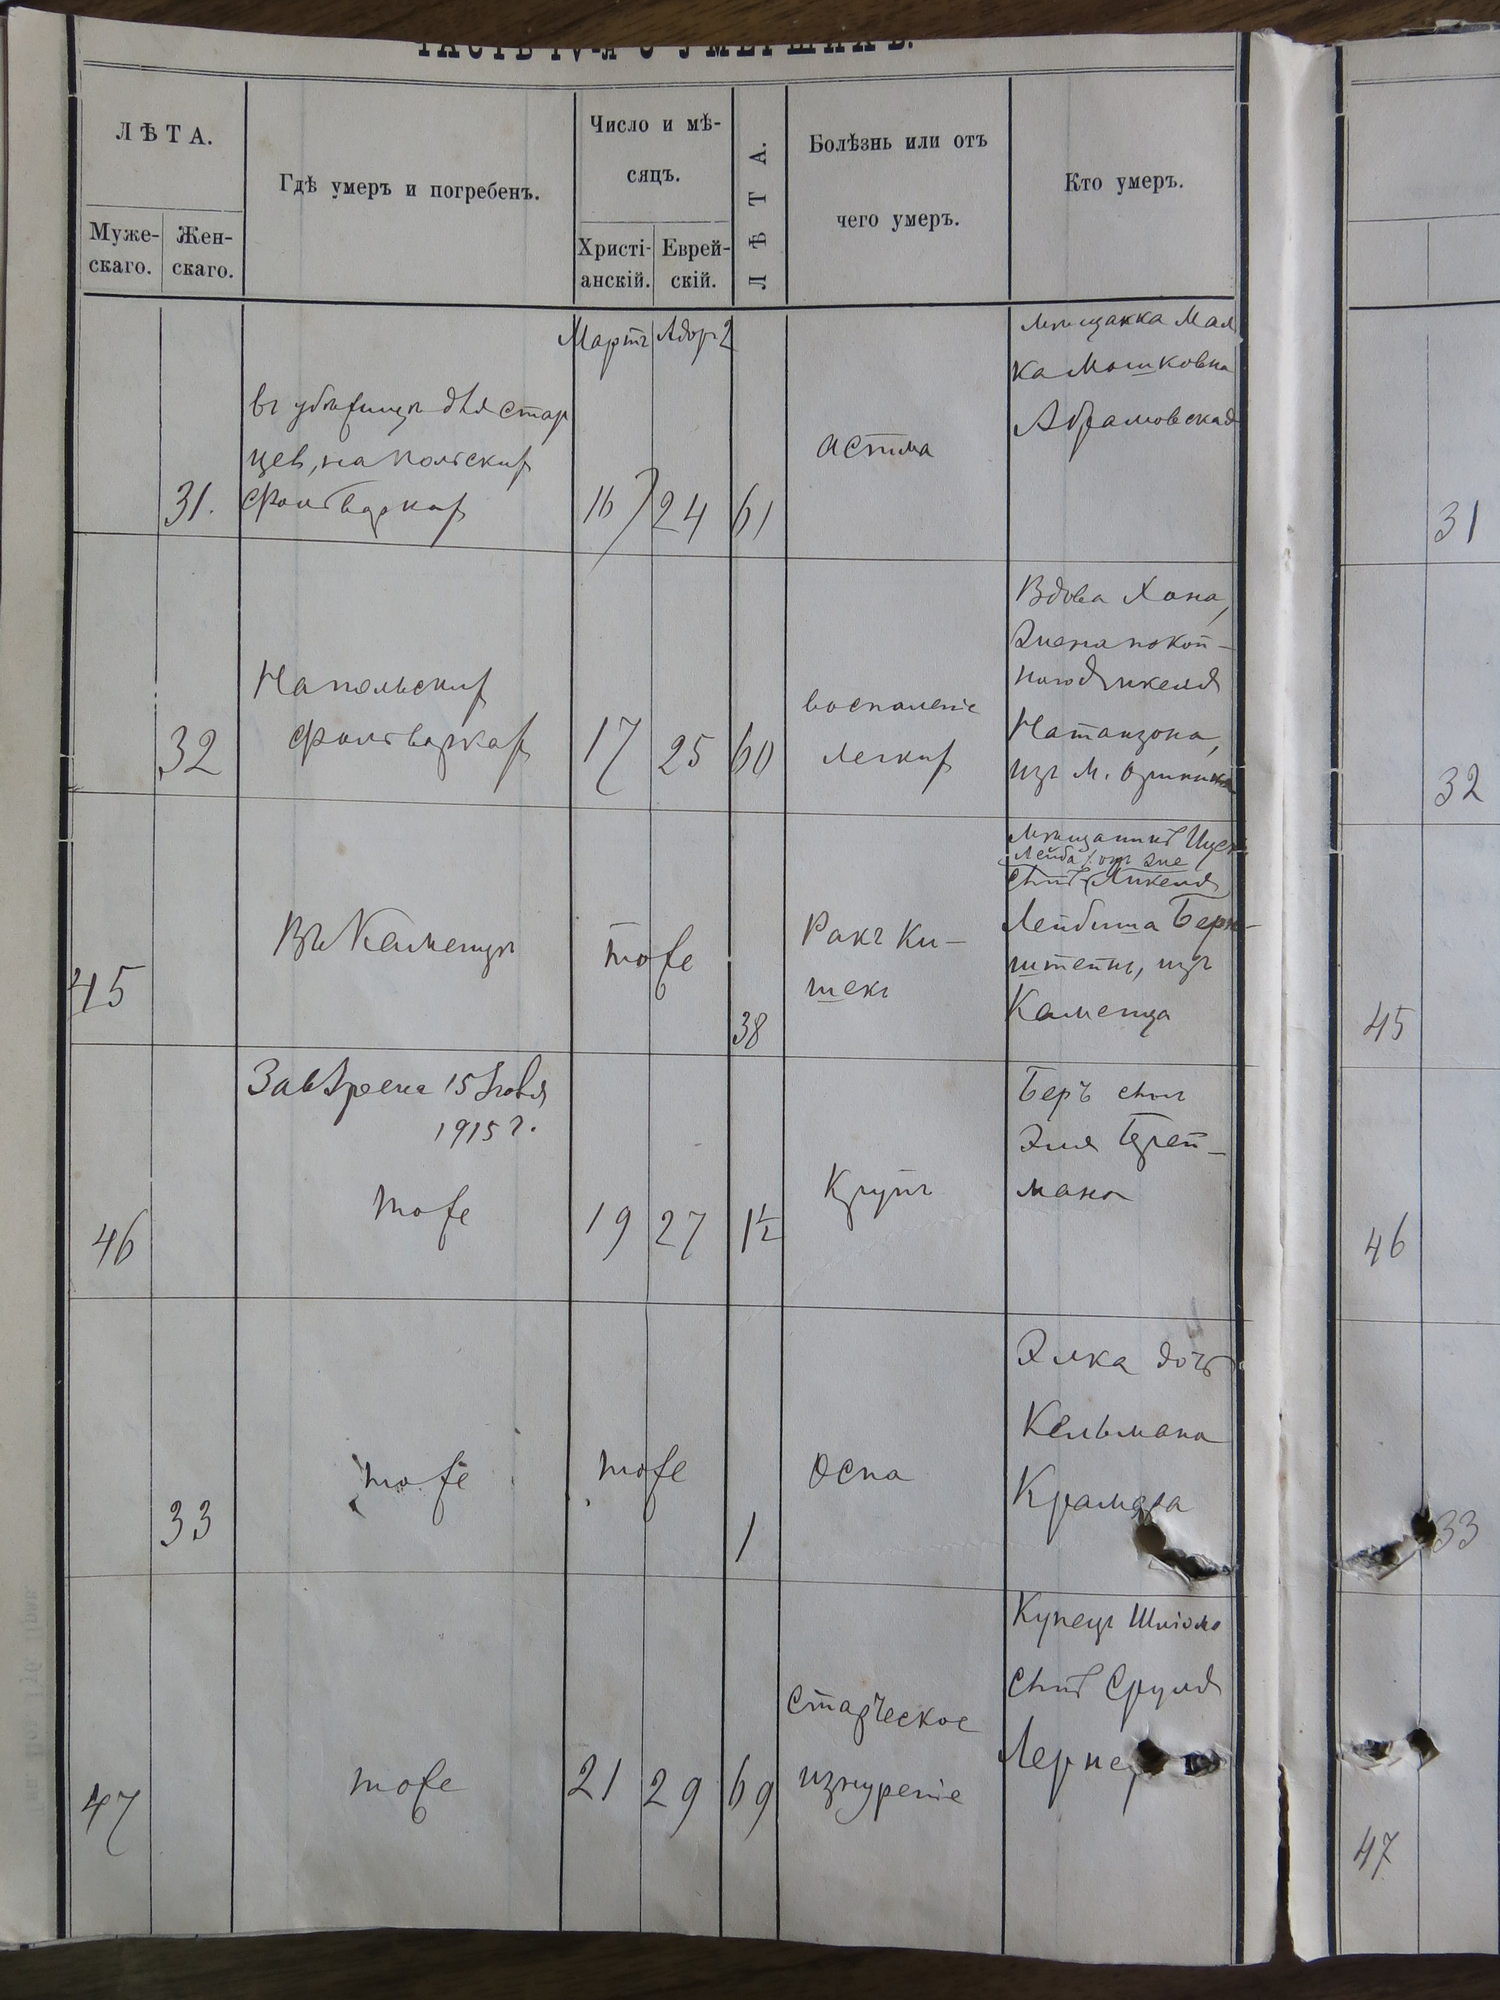 ЧАСТЬ IV-я О УМЕРШИХЪ.
ЛѢТА.
Муже-
скаго.
Жен-
скаго.
Гдѣ умеръ и погребенъ.
Число и мѣ-
сяцъ.
Христі-
анскій.
Еврей-
скій.
ЛѢТА.
Болѣзнь или отъ
чего умеръ.
Кто умеръ.
Мартъ Адор 2
31.
въ убѣжищѣ для стар
цев, на польских
фольварках
16 24 61
астма
мѣщанка Мал
ка Мошковна
Абрамовская
31
32
На польских
фольварках
17 25 60
воспаленіе
легких
Вдова Хана,
жена покой-
наго Янкеля
Натанзона,
изъ м.
32
45
Въ Каменцѣ
тоже
38
Ракъ Ки-
шекъ
мѣщанинъ Ицек
Лейба / он же
сынъ Янкеля
Лейбиша Берн-
штейнъ, изъ
Каменца
45
Завѣрена 15
1915 г.
46
тоже
19 27 1½
Крупъ
Беръ сынъ
Эля Брей-
мана
46
33
тоже
тоже
1
оспа
Элка дочь
Кельмана
Крамара
33
47
тоже
21 29 69
старческое
изнуреніе
Купецъ Шліома
сынъ Сруля
Лернер
47